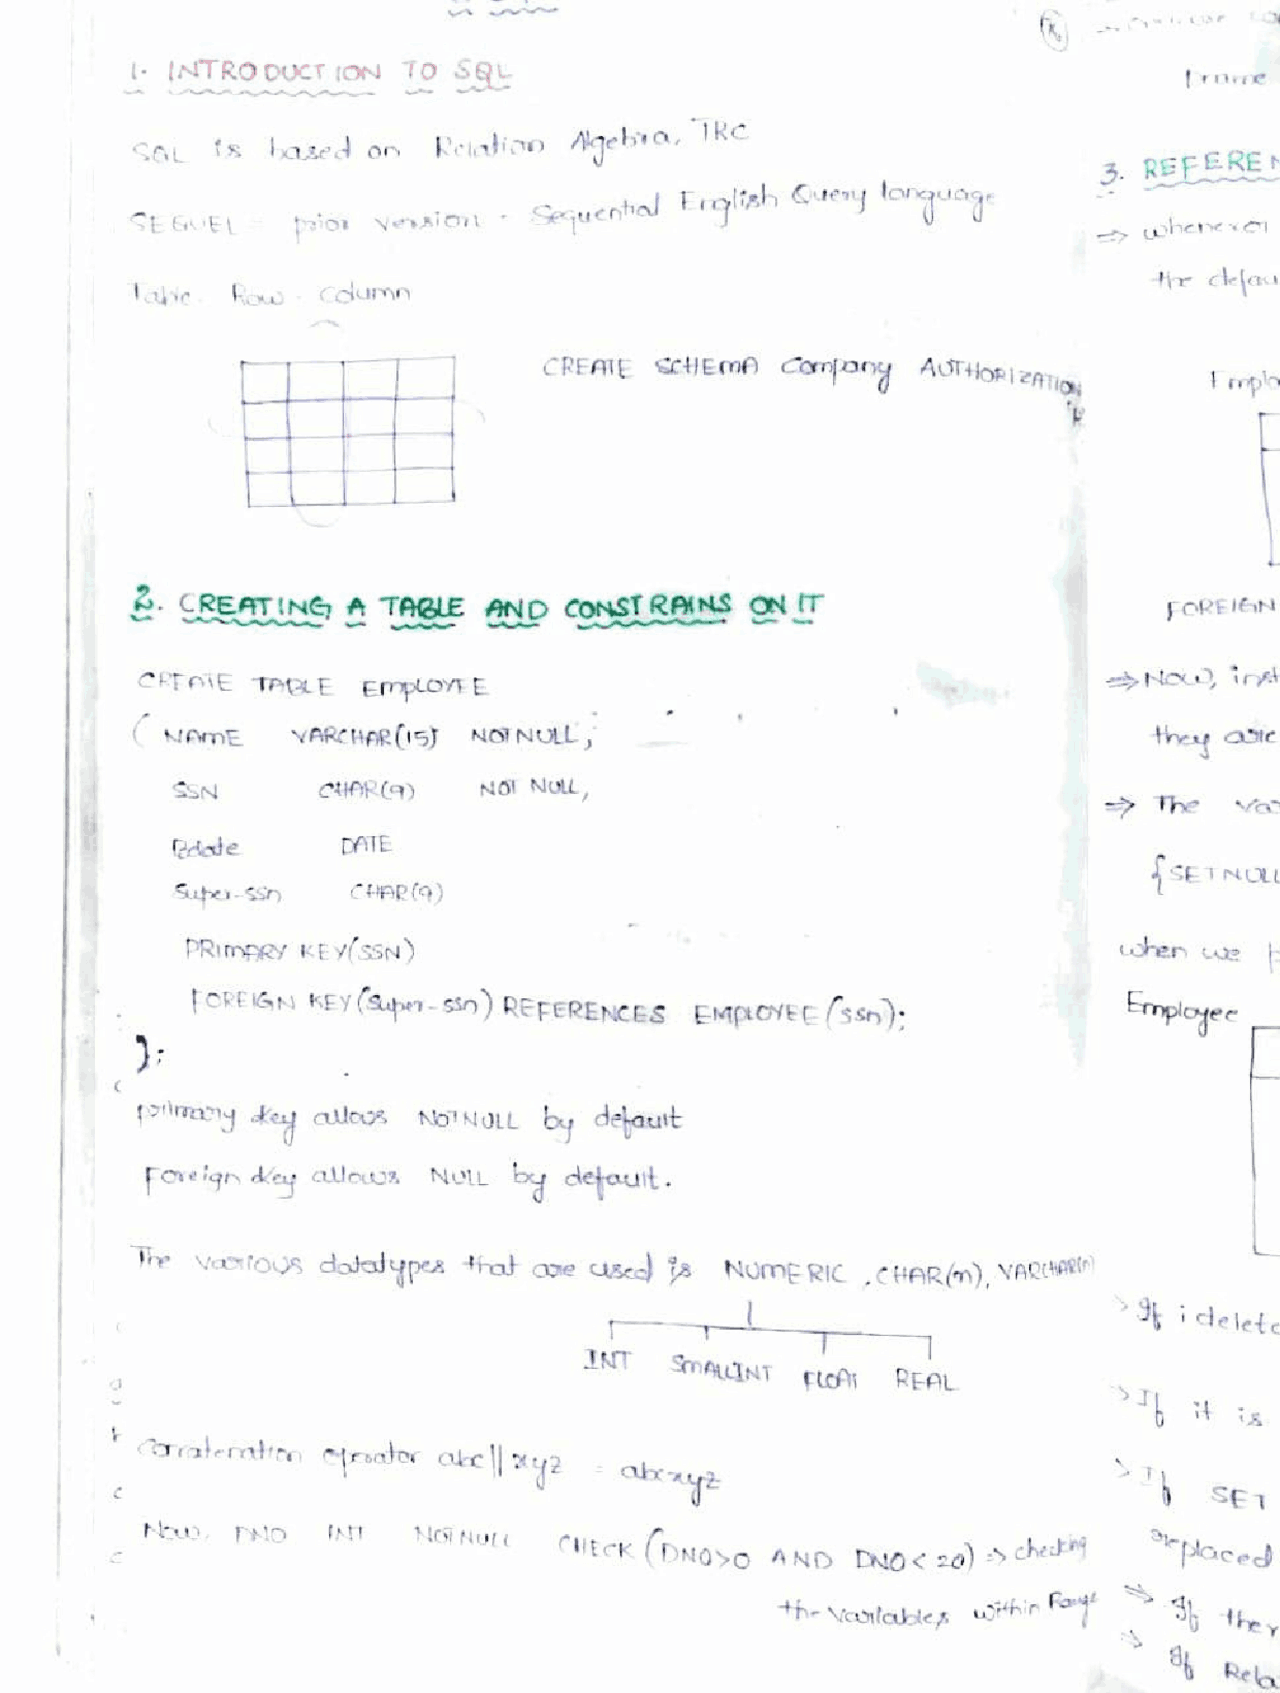 1. INTRODUCTION TO SQL
SQL is based on Relation Algebra, TRC
SEQUEL = prior version - Sequential English Query language
Table - Row - column
CREATE SCHEMA Company AUTHORIZATION
2. CREATING A TABLE AND CONSTRAINS ON IT
CREATE TABLE EMPLOYEE
( NAME VARCHAR(15) NOT NULL,
SSN CHAR(9) NOT NULL,
Bdate DATE
Super-ssn CHAR(9)
PRIMARY KEY(SSN)
FOREIGN KEY (Super-ssn) REFERENCES EMPLOYEE (ssn);
);
primary key allows NOT NULL by default
Foreign key allows NULL by default.
The various datatypes that are used is NUMERIC, CHAR(n), VARCHAR(n)
INT SMALLINT FLOAT REAL
Concatenation operator abc||xyz = abcxyz
Now, DNO INT NOT NULL CHECK (DNO>0 AND DNO<20) => checking
the variables within Range
3. REFEREN
=> whenever
the defau
Emplo
FOREIGN
=> Now, inst
they are
=> The va
{SET NULL
when we
Employee
> If i delete
> If it is
> If SET
replaced
=> If ther
=> If Rela